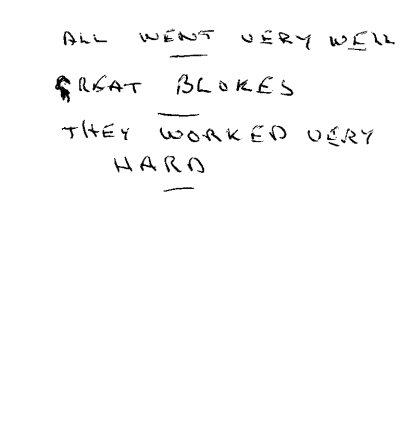 ALL WENT VERY WELL
GREAT BLOKES
THEY WORKED VERY
HARD